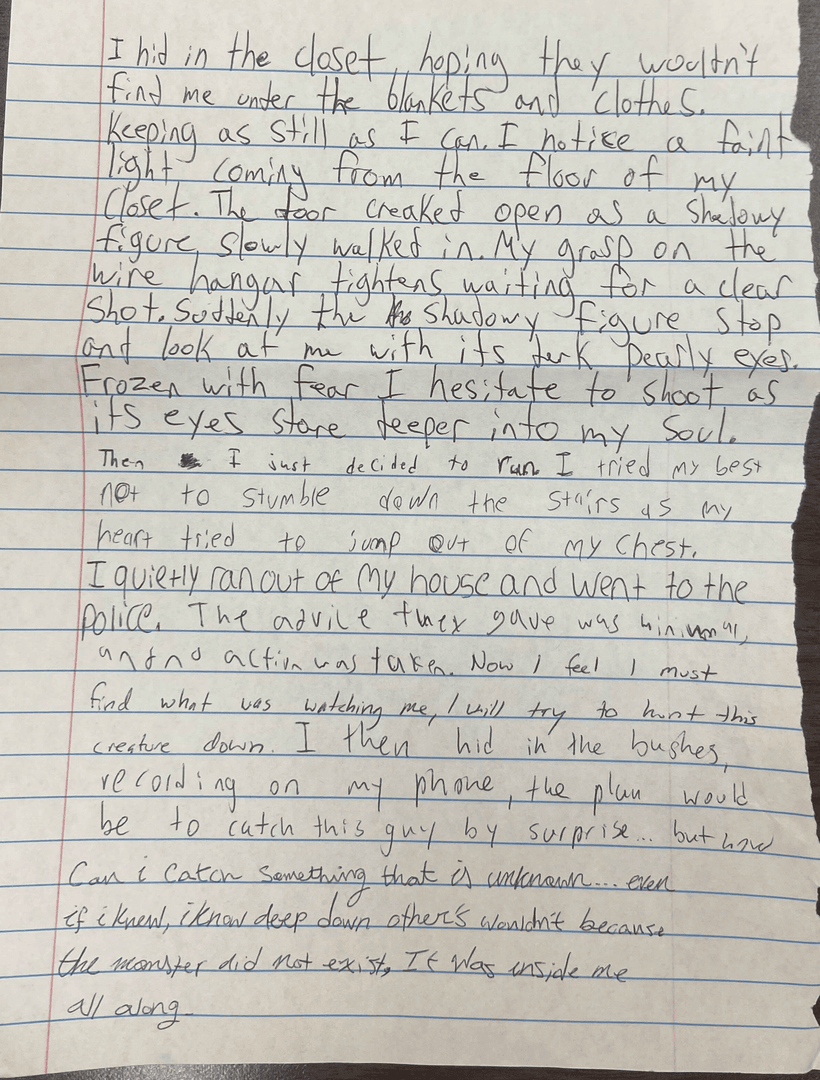 I hid in the closet, hoping they wouldn't
find me under the blankets and clothes.
Keeping as still as I can. I notice a faint
light coming from the floor of my
Closet. The door creaked open as a shadowy
figure slowly walked in. My grasp on the
wire hangar tightens waiting for a clear
Shot. Suddenly the shadowy figure stop
and look at me with its dark pearly eyes.
Frozen with fear I hesitate to shoot as
its eyes stare deeper into my soul.
Then I just decided to run I tried my best
not to stumble down the stairs as my
heart tried to jump out of my chest.
I quietly ran out of my house and went to the
police. The advice they gave was minimal,
and no action was taken. Now I feel I must
find what was watching me, I will try to hunt this
creature down. I then hid in the bushes,
recording on my phone, the plan would
be to catch this guy by surprise... but how
Can i catch something that is unknown... even
if i knew, i know deep down other's wouldn't because
the monster did not exist, It was inside me
all along